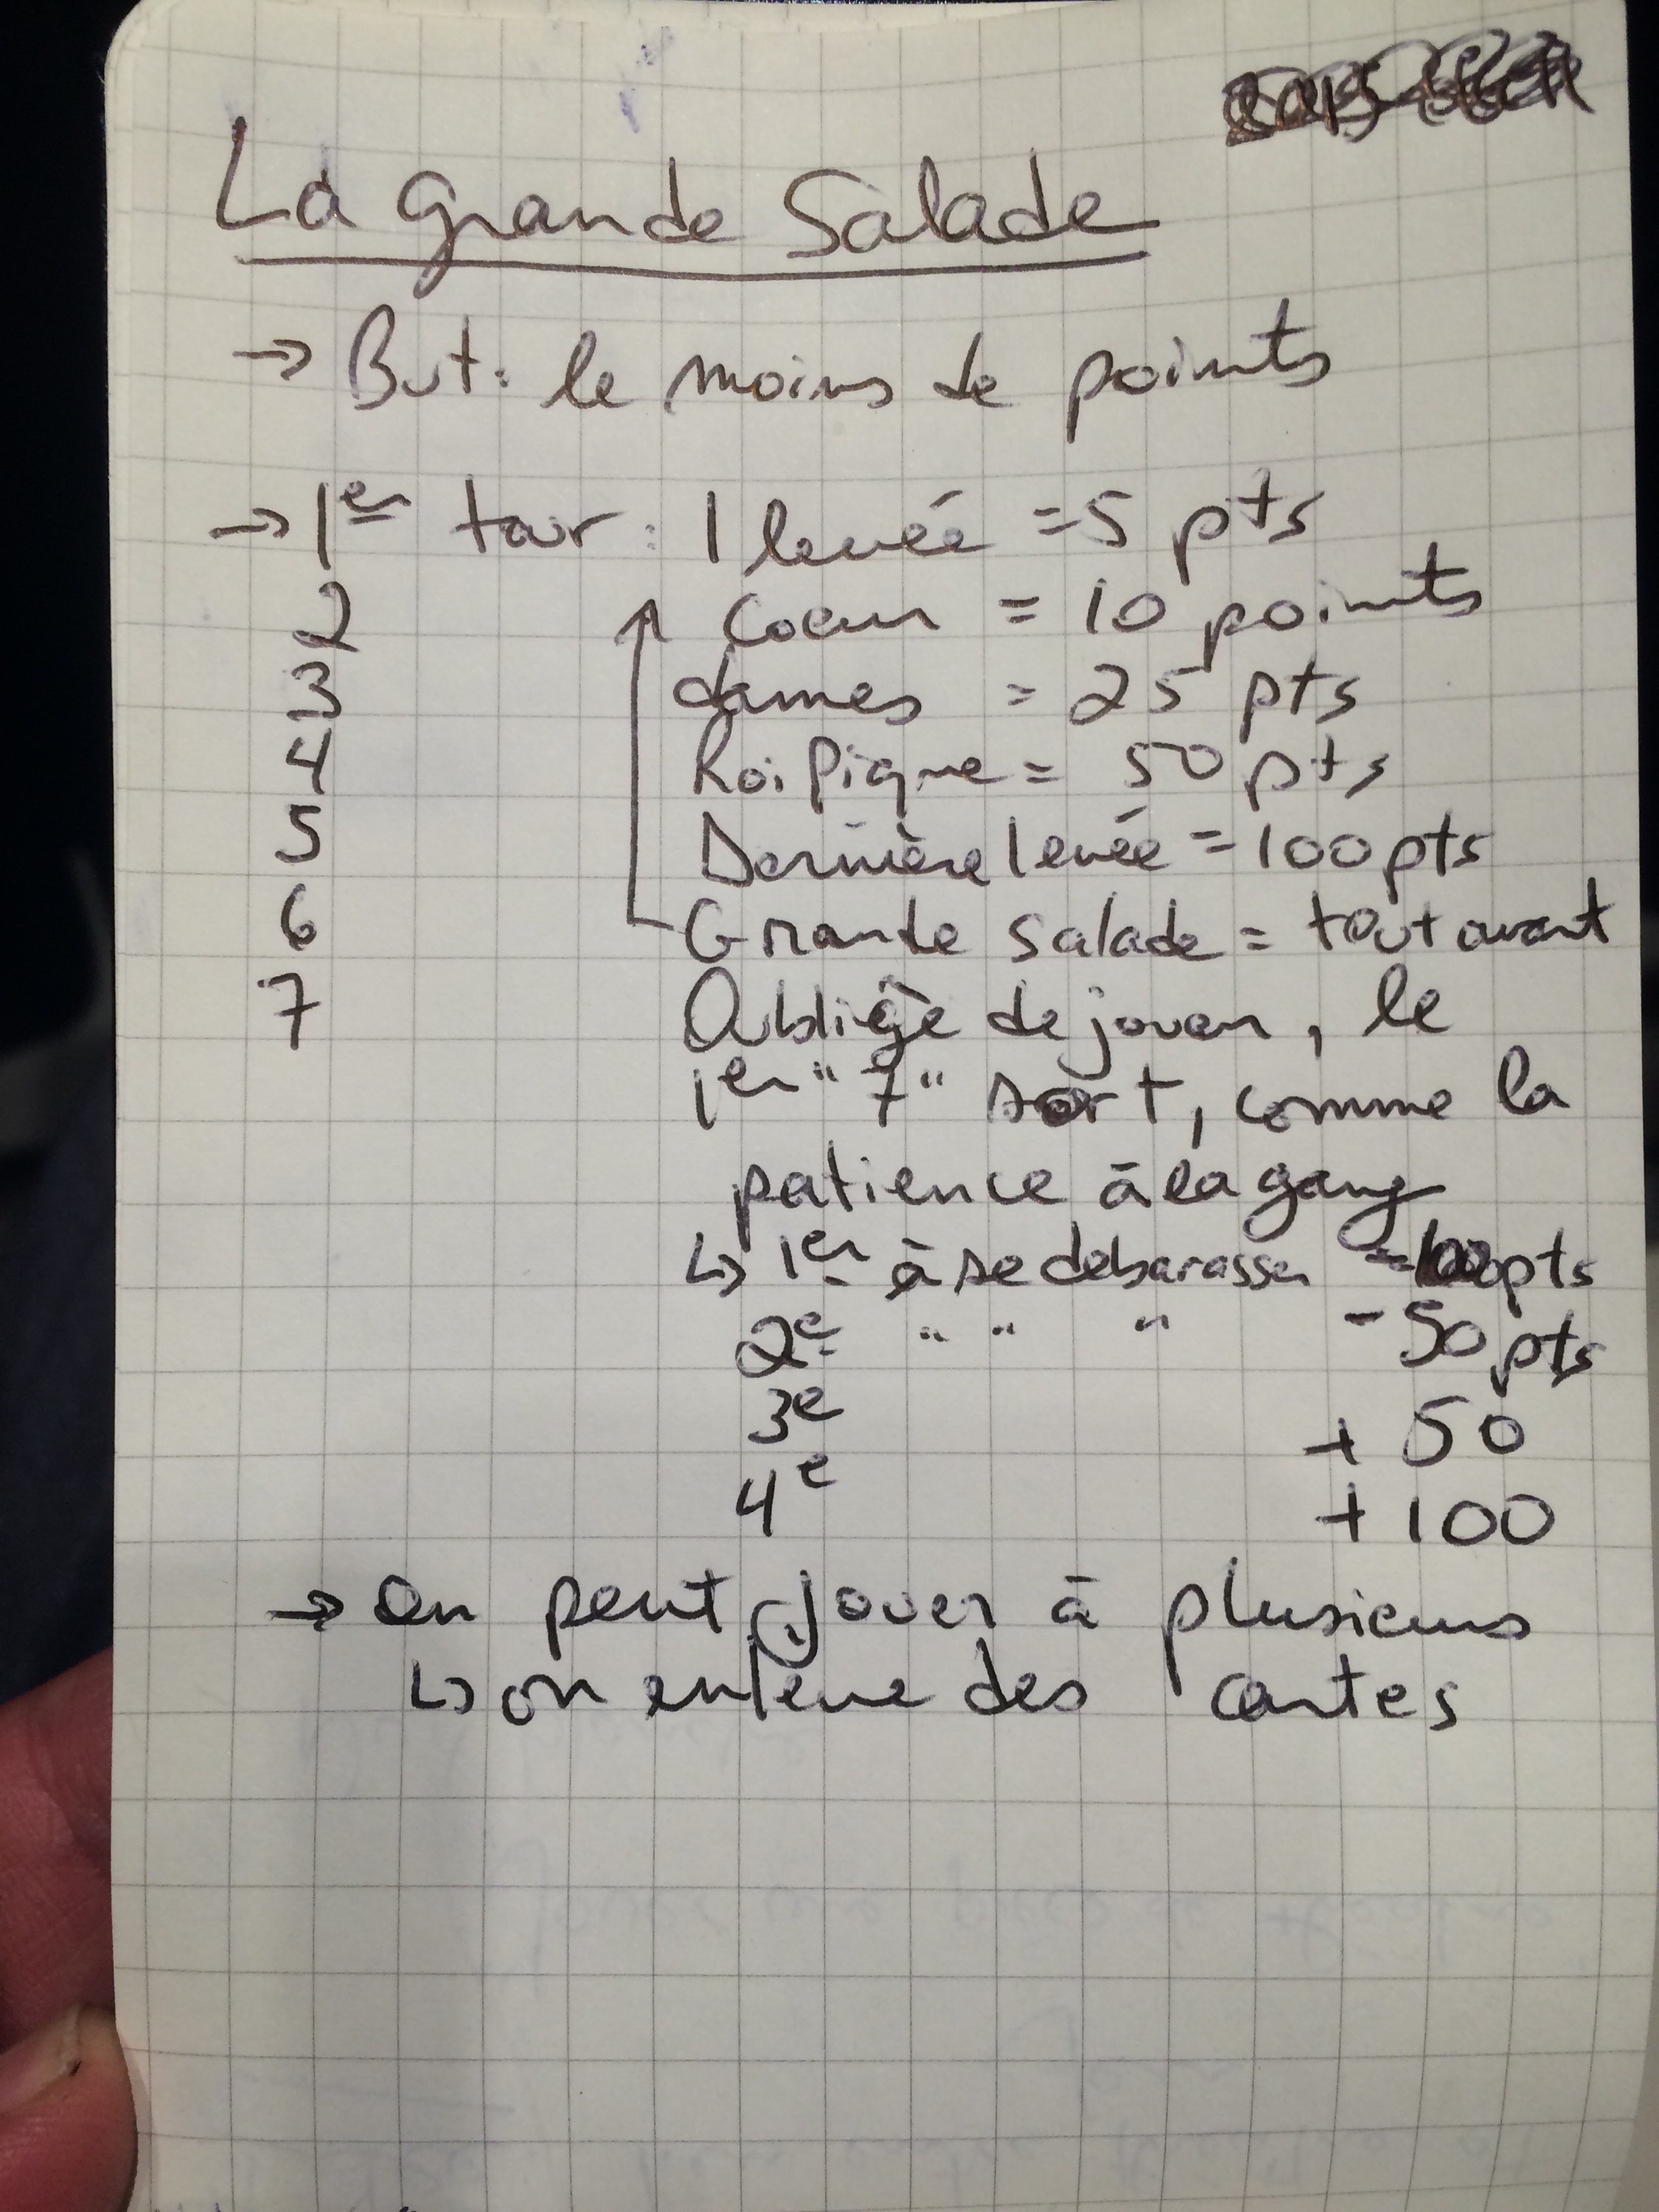 La grande Salade
→ But: le moins de points
→ 1er tour: 1 levée = 5 pts
2 Coeur = 10 points
3 dames = 25 pts
4 Roi Pique = 50 pts
5 Dernière levée = 100 pts
6 Grande salade = tout avant
7 Obligé de jouer, le
1er "7" sort, comme la
patience à la gang
↳ 1er à se debarasser -100pts
2e " " " - 50 pts
3e + 50
4e + 100
→ On peut jouer à plusieurs
↳ on enlève des cartes